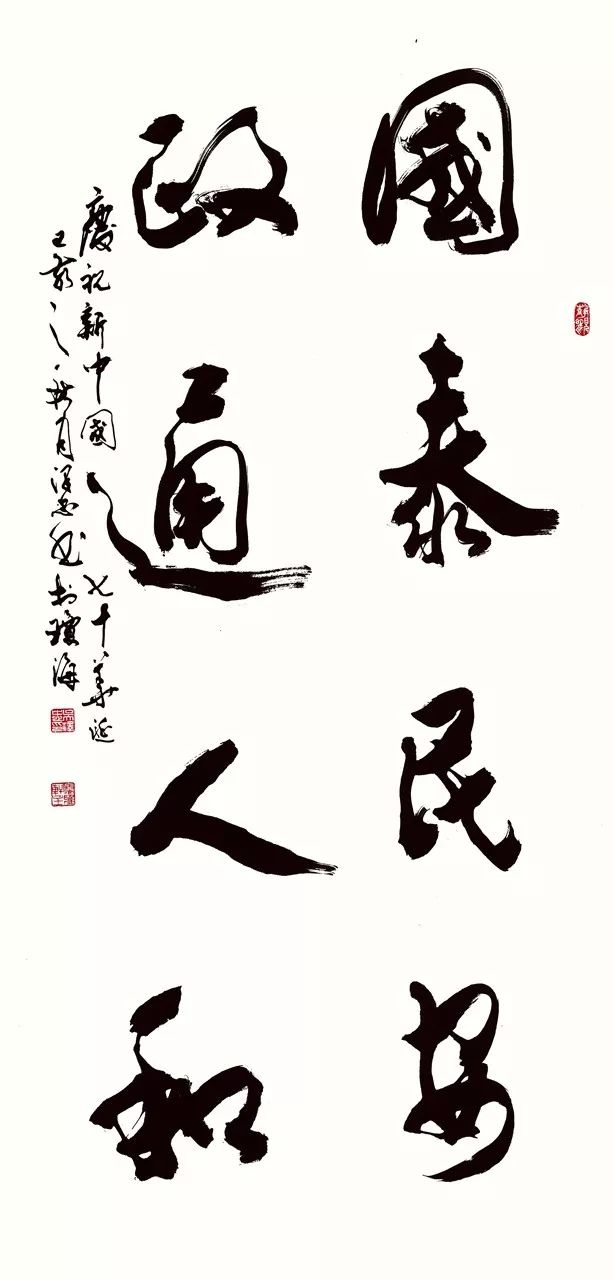 國泰民安
政通人和
慶祝新中國七十華誕
己亥之秋月澤忠書瓊海